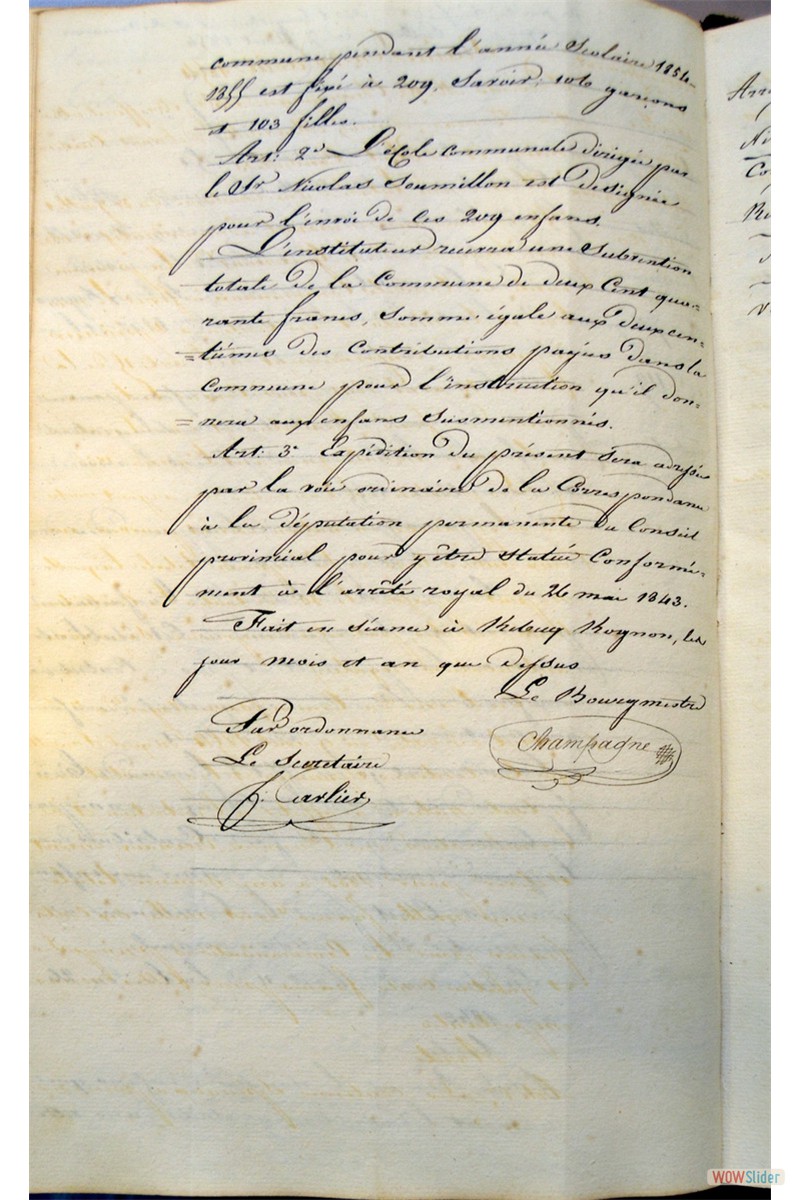 commune pendant l'année Scolaire 1854-
1855 est fixé à 209, Savoir; 106 garçons
et 103 filles.
Art: 2e L'école communale dirigée par
le Sr Nicolas Soumillon est designée
pour l'envoi de ces 209 enfans.
L'instituteur recevra une Subvention
totale de la Commune de deux Cent qua-
rante francs, Somme égale aux deux cen-
=tièmes des Contributions payées dans la
Commune pour l'instruction qu'il don-
=nera aux enfans susmentionnés.
Art: 3e Expédition du présent Sera adressée
par la voie ordinaire de la Correspondance
à la députation permanente du Conseil
provincial pour y être Statué Conformé-
ment à l'arrêté royal du 26 mai 1843.
Fait en Séance à Rebecq Rognon, les
jour mois et an que dessus
Le Bourgmestre
Par ordonnance
Champagne
Le Secretaire
Carlier
Arr
Ni
Co
WOWSlider